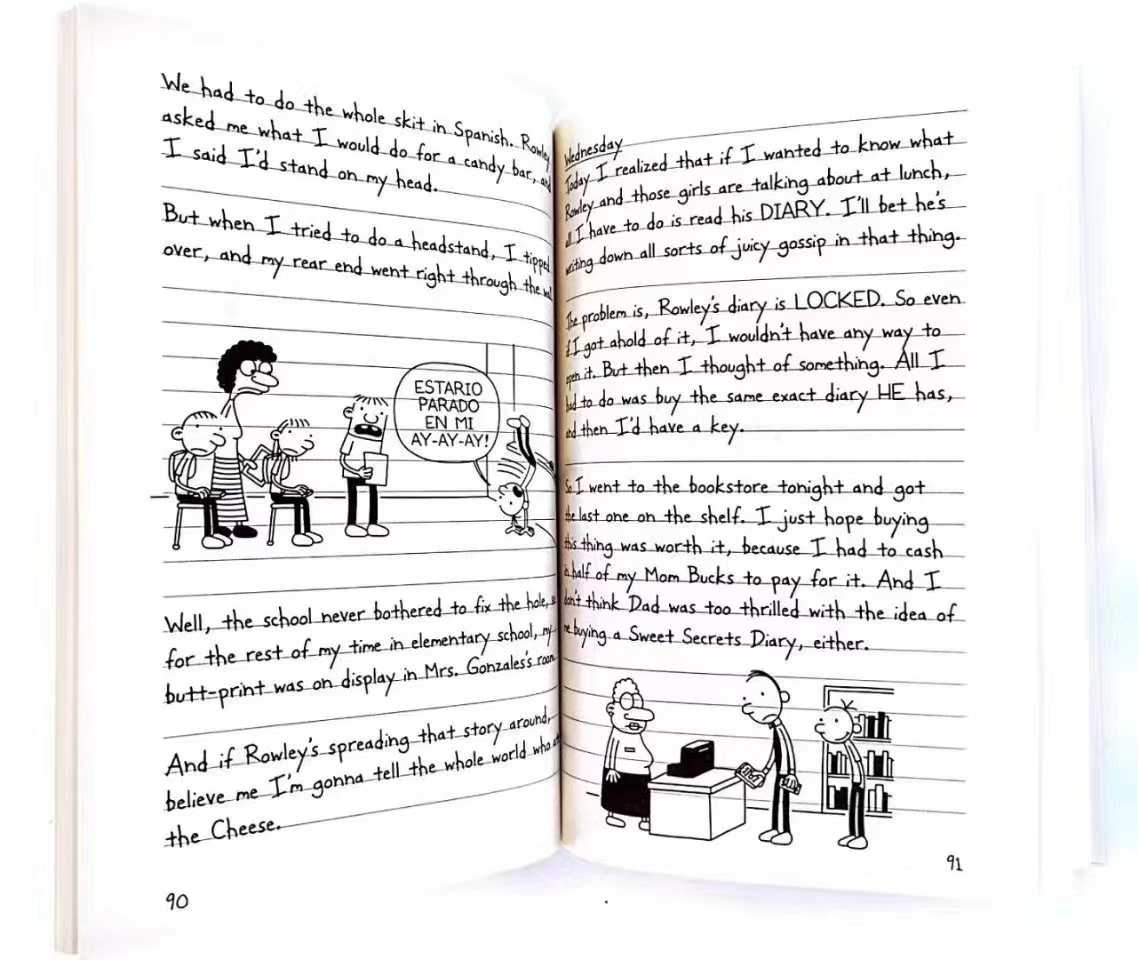 We had to do the whole skit in Spanish. Rowley
asked me what I would do for a candy bar, and
I said I'd stand on my head.
But when I tried to do a headstand, I tipped
over, and my rear end went right through the
ESTARIO
PARADO
EN MI
AY-AY-AY!
Well, the school never bothered to fix the hole, so
for the rest of my time in elementary school, my
butt-print was on display in Mrs. Gonzales's room.
And if Rowley's spreading that story around,
believe me I'm gonna tell the whole world who
the Cheese.
90
Wednesday
Today I realized that if I wanted to know what
Rowley and those girls are talking about at lunch,
all I have to do is read his DIARY. I'll bet he's
writing down all sorts of juicy gossip in that thing.
The problem is, Rowley's diary is LOCKED. So even
if I got ahold of it, I wouldn't have any way to
open it. But then I thought of something. All I
had to do was buy the same exact diary HE has,
and then I'd have a key.
So I went to the bookstore tonight and got
the last one on the shelf. I just hope buying
this thing was worth it, because I had to cash
in half of my Mom Bucks to pay for it. And I
don't think Dad was too thrilled with the idea of
me buying a Sweet Secrets Diary, either.
91